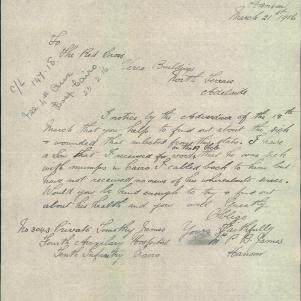 Hanson
March 21st 1916
To
The Red Cross
Verco Buildings
North Terrace
Adelaide
C/L 147.15
I notice by the Advertiser of the 18th
March that you help to find out about the sick
& wounded that enlisted from this State. I have
a son that I received word that he was sick
with mumps in Cairo. I cabled back to him but
have not received no news of his whereabouts since.
Would you be kind enough to try & find out
about his health and you will greatly
Oblige
Yours Faithfully
P. B. James
Hanson
Private Timothy James
Auxiliary Hospital
Tenth Infantry Cairo